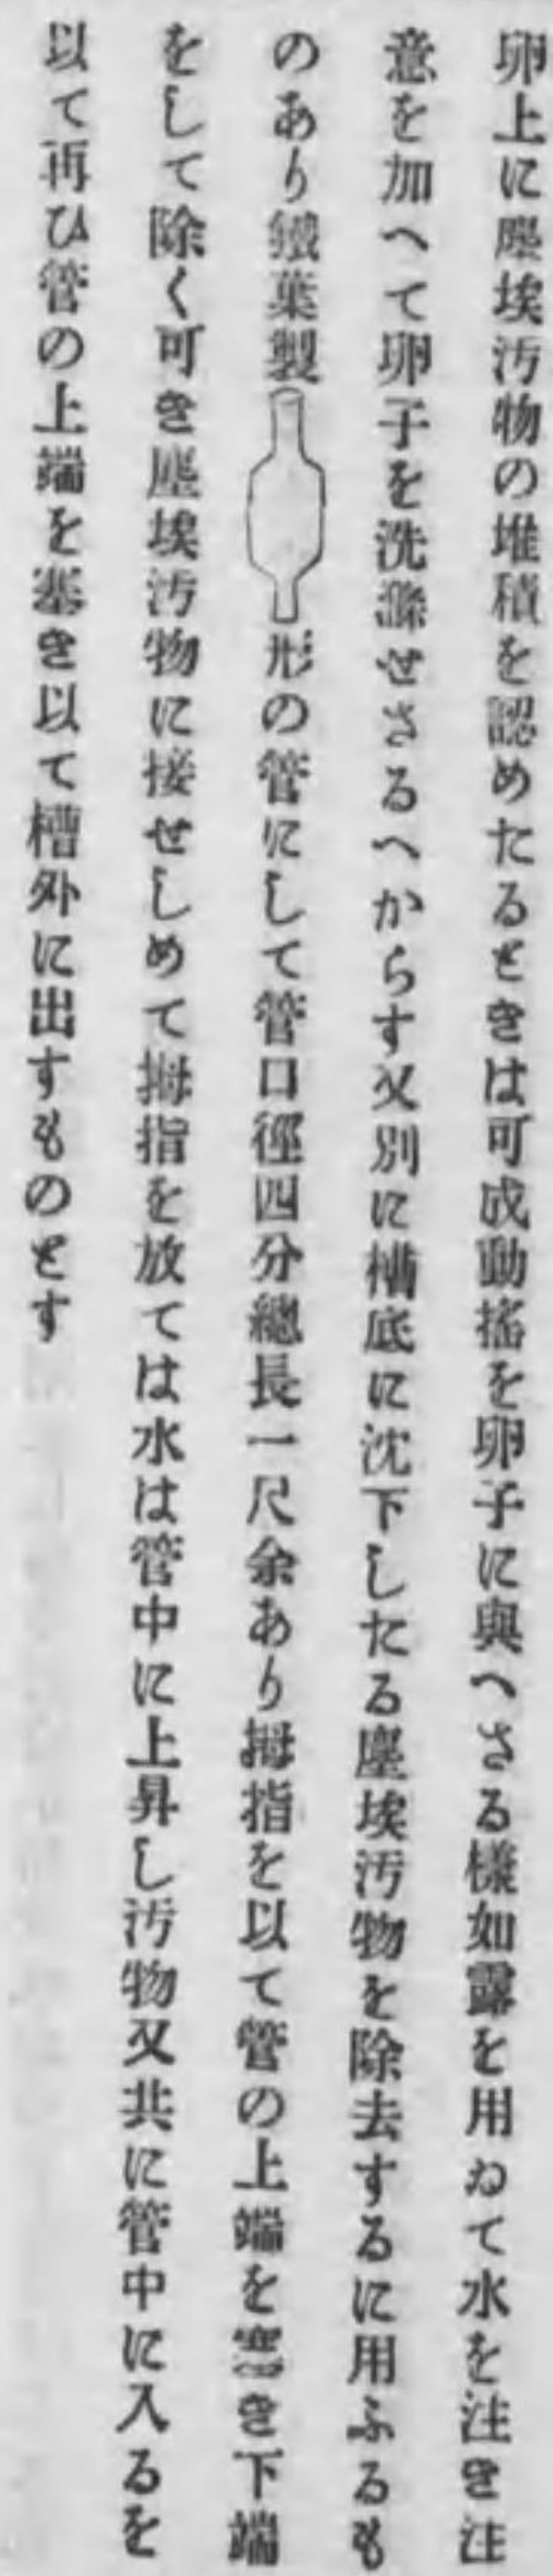 卵上に塵埃汚物の堆積を認めたるときは可成動搖を卵子に與へさる樣如露を用ゐて水を注き注
意を加へて卵子を洗滌せさるへからす又別に槽底に沈下したる塵埃汚物を除去するに用ふるも
のあり鐵葉製形の管にして管口徑四分總長一尺余あり拇指を以て管の上端を塞き下端
をして除く可き塵埃汚物に接せしめて拇指を放ては水は管中に上昇し汚物又共に管中に入るを
以て再ひ管の上端を塞き以て槽外に出すものとす